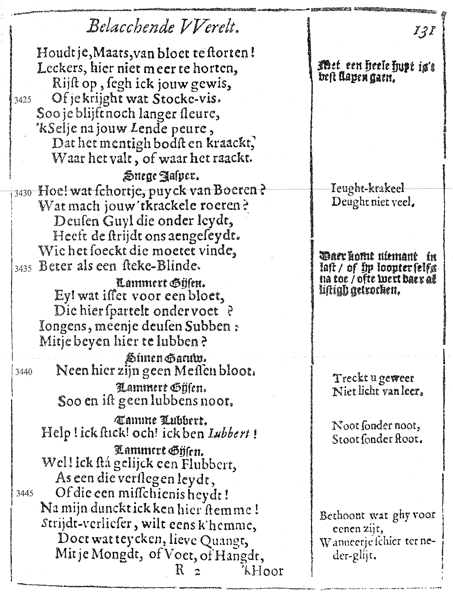 Belacchende VVerelt.
131
Houdt je, Maats, van bloet te ſtorten!
Leckers, hier niet meer te horten,
Rijſt op, ſegh ick jouw gewis,
3425 Of je krijght wat Stocke-vis.
Soo je blijft noch langer ſleure,
'k Selje na jouw Lende peure,
Dat het mentigh bodſt en kraackt,
Waar het valt, of waar het raackt.
Snege Jaſper.
3430 Hoe! wat ſchortje, puyck van Boeren?
Wat mach jouw 't krackele roeren?
Deuſen Guyl die onder leydt,
Heeft de ſtrijdt ons aengeſeydt.
Wie het ſoeckt die moetet vinde,
3435 Beter als een ſteke-Blinde.
Lammert Gijſen.
Ey! wat iſſet voor een bloet,
Die hier ſpartelt onder voet?
Iongens, meenje deuſen Subben?
Mitje beyen hier te lubben?
Simen Gaeuw.
3440 Neen hier zijn geen Meſſen bloot.
Lammert Gijſen.
Soo en iſt geen lubbens noot.
Tamme Lubbert.
Help! ick ſtick! och! ick ben Lubbert!
Lammert Gijſen.
Wel! ick ſtá gelijck een Flubbert,
As een die verſlegen leydt,
3445 Of die een miſſchienis heydt!
Na mijn dunckt ick ken hier ſtemme!
Strijdt-verlieſer, wilt eens k'hemme,
Doet wat teycken, lieve Quangt,
Mit je Mongdt, of Voet, of Hangdt,
R 2 'k Hoor
Met een heele hupt is't
beſt ſlapen gaen.
Ieught-krakeel
Deught niet veel.
Daer komt niemant in
laſt / of hy loopter ſelfs
na toe / ofte wert daer al
liſtigh getrocken.
Treckt u geweer
Niet licht van leer.
Noot ſonder noot,
Stoot ſonder ſtoot.
Bethoont wat ghy voor
eenen zijt,
Wanneer je ſchier ter ne-
der-glijt.